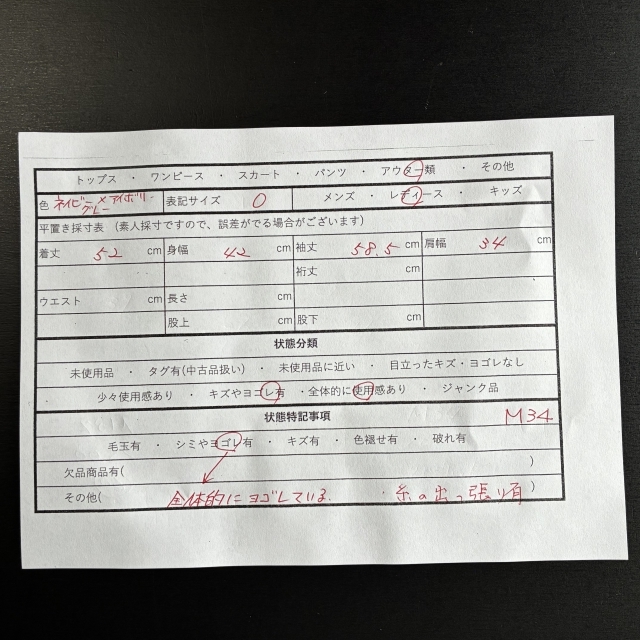 トップス ・ ワンピース ・ スカート ・ パンツ ・ アウター類 ・ その他
色 ネイビー×アイボリー 表記サイズ 0 メンズ ・ レディース ・ キッズ
グレー
平置き採寸表 (素人採寸ですので、誤差がでる場合がございます)
着丈 52 cm 身幅 42 cm 袖丈 58.5 cm 肩幅 34 cm
裄丈 cm
ウエスト cm 長さ cm
股上 cm 股下 cm
状態分類
未使用品 ・ タグ有(中古品扱い) ・ 未使用品に近い ・ 目立ったキズ・ヨゴレなし
少々使用感あり ・ キズやヨゴレ有 ・ 全体的に使用感あり ・ ジャンク品
状態特記事項 M34
毛玉有 ・ シミやヨゴレ有 ・ キズ有 ・ 色褪せ有 ・ 破れ有
欠品商品有( )
その他( 全体的にヨゴレている. ・糸の出っ張り有 )